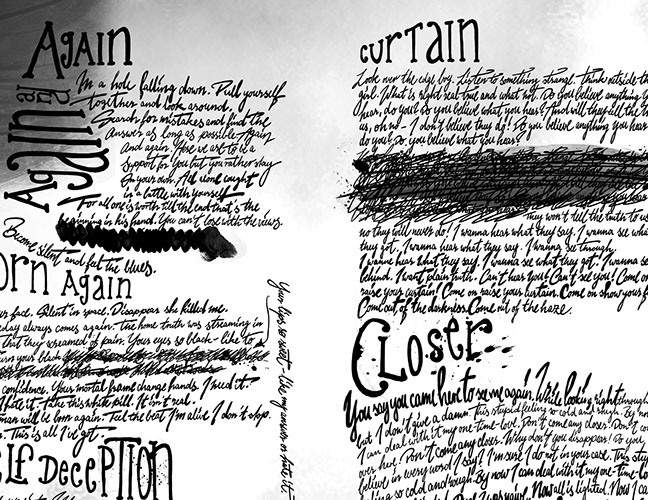 Again
Again and again
I'm a hole falling down. Pull yourself
together and look around.
Search for mistakes and find the
answer as long as possible. Again
and again. Here we are to be a
support for you but you rather stay
on your own. I'll alone caught
in a battle with yourself.
For all one is worth till the end that's the
beginning in his hand. You can't lose with the views.
Become silent and feel the blues.
orn Again
r face. Silent in space. Disappear she killed me.
day always comes again. The home truth was streaming in
that they screamed of pain. Your eyes so black - like to
urn your black
confidence. Your mortal frame change hands. I need it.
hate it. Take this white pill. It isn't real.
man will be born again. Feel the beat I'm alive I don't stop.
. This is all I've got.
elf Deception
Your lips so sweet - like my answer or hate it.
Curtain
Look over the edge boy. Listen to something strange. Think outside th
girl. What is right real true and what not. Do you believe anything y
hear, do you? So you believe what you hear? And will they tell the tr
us, oh no - I don't believe they do! Do you believe anything you hear
do you? Do you believe what you hear?
They won't tell the truth to us
no they will never do! I wanna hear what they say. I wanna see what
they got. I wanna hear what they say. I wanna see through.
I wanna hear what they say. I wanna see what they got. I wanna se
behind. I want plain truth. Can't hear you! Can't see you! Come on
raise your curtain! Come on raise your curtain. Come on show your f
Come out of the darkness. Come out of the haze.
Closer
You say you came here to see me again. While looking right through
but I don't give a damn. This stupid feeling so cold and rough. By no
I can deal with it my one-time-love. Don't come any closer. Don't co
over here. Don't come any closer. Why don't you disappear! Do you
believe in every word I say! I'm sure! I do not in your case. This stu
feeling so cold and rough. By now I can deal with it my one-time-lo
Now all is lighted. Now I ca